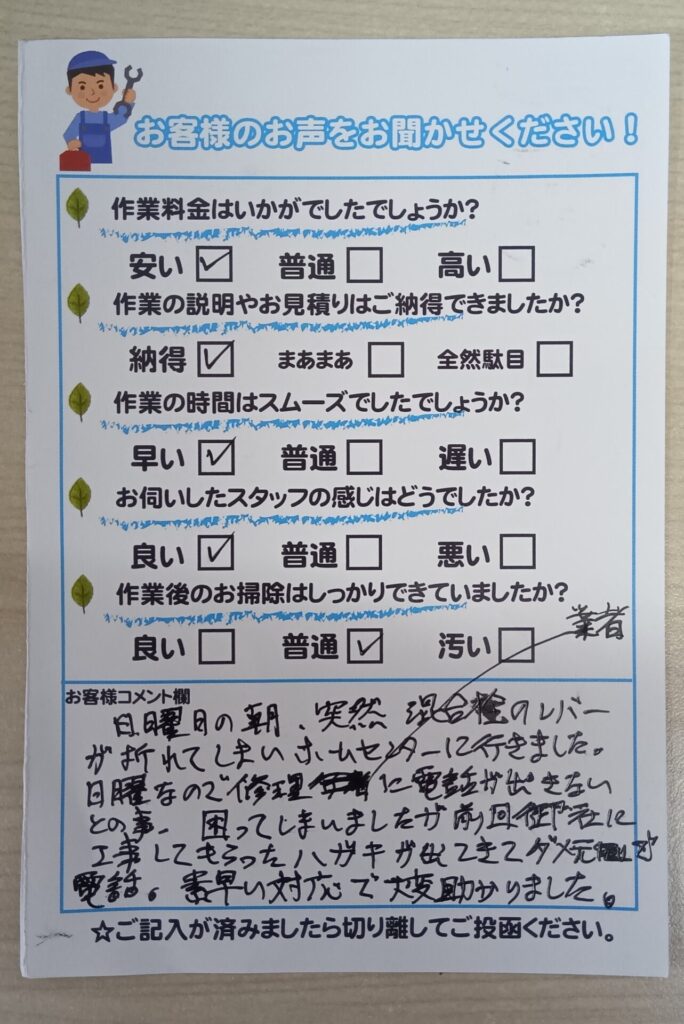 お客様のお声をお聞かせください！
作業料金はいかがでしたでしょうか？
安い ☑ 普通 □ 高い □
作業の説明やお見積りはご納得できましたか？
納得 ☑ まあまあ □ 全然駄目 □
作業の時間はスムーズでしたでしょうか？
早い ☑ 普通 □ 遅い □
お伺いしたスタッフの感じはどうでしたか？
良い ☑ 普通 □ 悪い □
作業後のお掃除はしっかりできていましたか？
良い □ 普通 ☑ 汚い □
業者
お客様コメント欄
日曜日の朝、突然 混合栓のレバー
が折れてしまいホームセンターに行きました。
日曜なので修理 に電話が出きない
との事、困ってしまいましたが前回御社に
工事してもらったハガキが出てきてダメ元で
電話。素早い対応で大変助かりました。
☆ご記入が済みましたら切り離してご投函ください。